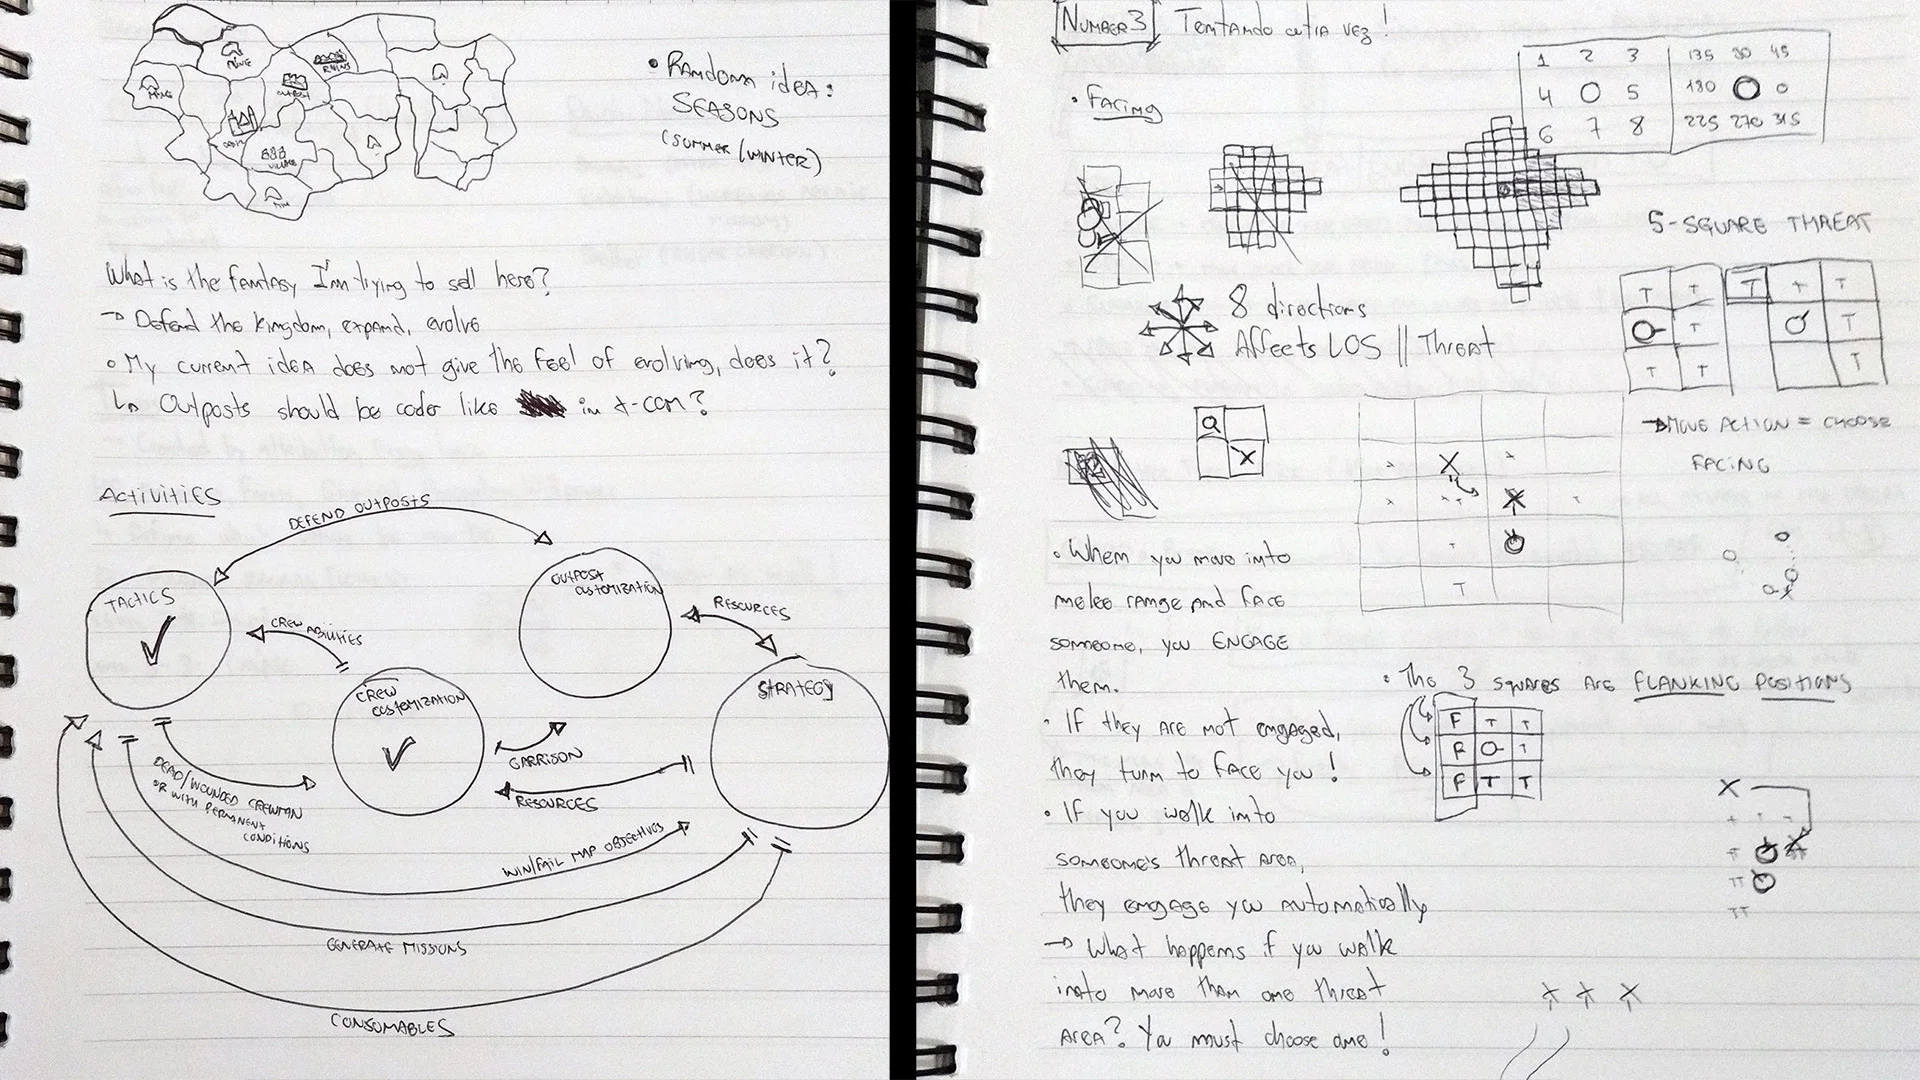 MINE
RUINS
MINE
OUTPOST
VILLAGE
• RANDOM idEA:
SEASONS
(SUMMER/WINTER)
What is the fantasy I'm trying to sell here?
→ Defend the kingdom, expand, evolve
• My current idea does not give the feel of evolving, does it?
↳ Outposts should be coder like in X-COM?
ACTIVITIES
DEFEND OUTPOSTS
TACTICS
OUTPOST
CUSTOMIZATION
CREW ABILITIES
RESOURCES
CREW
CUSTOMIZATION
STRATEGY
GARRISON
RESOURCES
DEAD/WOUNDED CREWMAN
OR WITH PERMANENT
CONDITIONS
WIN/FAIL MAP OBJECTIVES
GENERATE MISSIONS
CONSUMABLES
NUMBER 3 Tentando outra vez!
1 2 3 135 90 45
4 5 180 0
6 7 8 225 270 315
• FACING
5-SQUARE THREAT
T T T T T
T T
T T T
8 directions
Affects LOS || THREAT
→ MOVE ACTION = CHOOSE
FACING
X
T
• When you move into
melee range and face
someone, you ENGAGE
them.
• If they are not engaged,
they turn to face you!
• If you walk into
someone's threat area,
they engage you automatically
→ What happens if you walk
into more than one threat
area? You must choose one!
• The 3 squares are FLANKING POSITIONS
F T T
F T
F T T
X
TT
TT